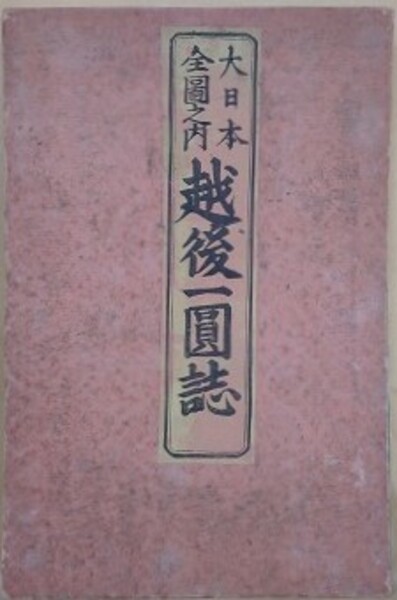 大日本
全圖之内
越後一圓誌